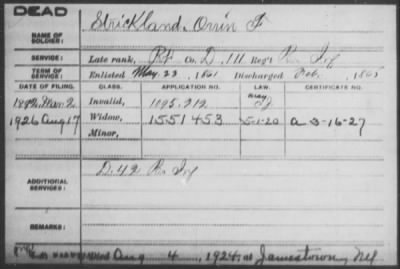 DEAD
NAME OF SOLDIER: Strickland, Orrin F
SERVICE: Late rank, Pt Co. D, 111 Reg't Pa Inf
TERM OF SERVICE: Enlisted May 23, 1861 Discharged Feb. , 186
DATE OF FILING. CLASS. APPLICATION NO. LAW.
1892 Mar 2 Invalid, 1095.212
1926 Aug 17 Widow, 1551453 5-1-20 a 3-16-27
Minor,
ADDITIONAL SERVICES: D. 42 Pa Inf
REMARKS:
Died Aug 4, 1924, at Jamestown, NY